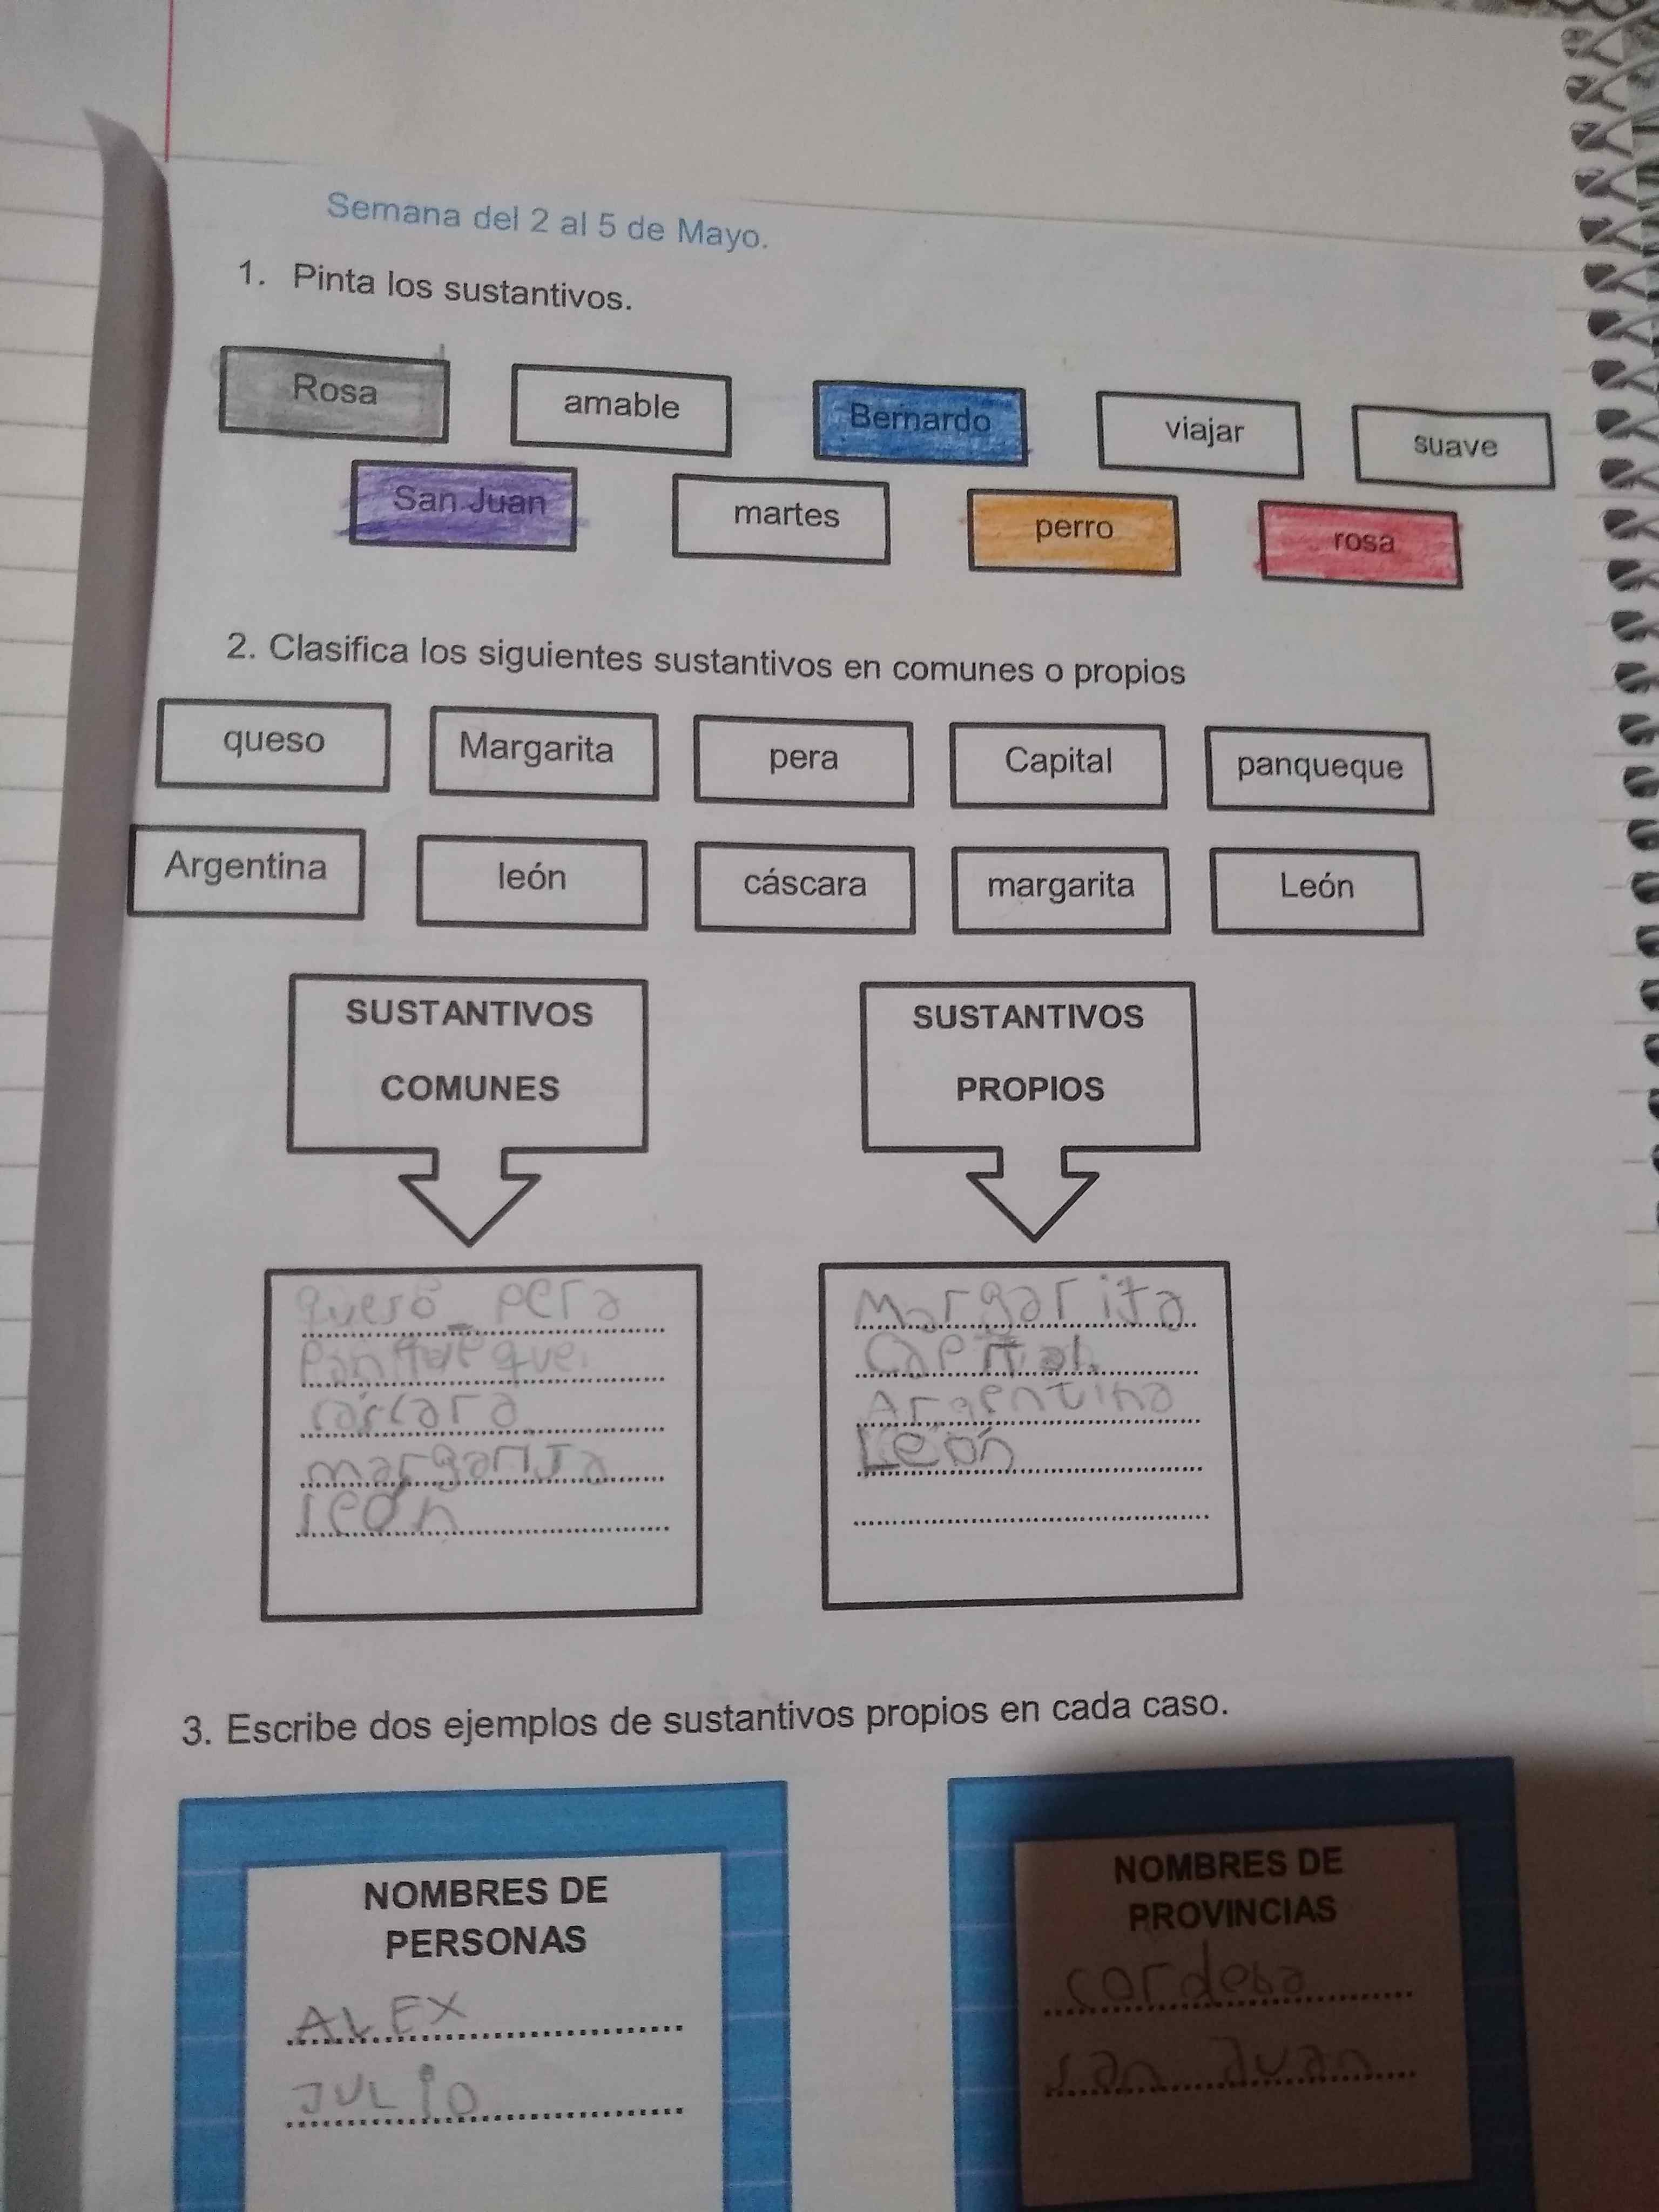 Semana del 2 al 5 de Mayo.
1. Pinta los sustantivos.
Rosa amable Bernardo viajar suave
San Juan martes perro rosa
2. Clasifica los siguientes sustantivos en comunes o propios
queso Margarita pera Capital panqueque
Argentina león cáscara margarita León
SUSTANTIVOS
COMUNES
SUSTANTIVOS
PROPIOS
queso pera
cáscara
margarita
león
Margarita
Capital
Argentina
León
3. Escribe dos ejemplos de sustantivos propios en cada caso.
NOMBRES DE
PERSONAS
ALEX
JULIO
NOMBRES DE
PROVINCIAS
cordoba
san Juan